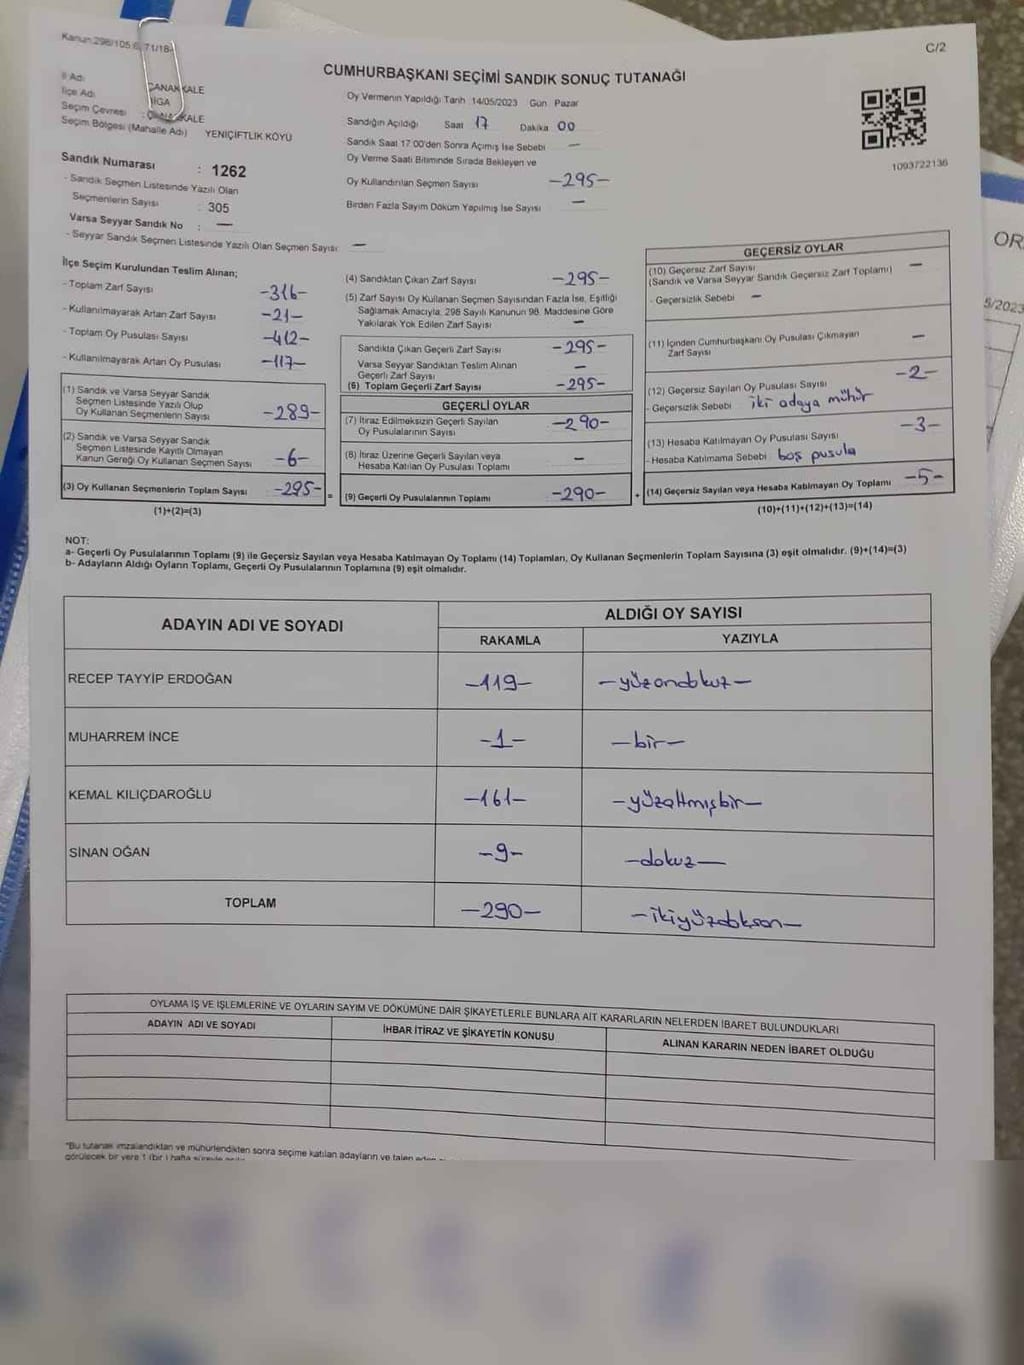 Kanun.298/105.6, 71/18-
C/2
CUMHURBAŞKANI SEÇİMİ SANDIK SONUÇ TUTANAĞI
İl Adı ÇANAKKALE
İlçe Adı BİGA
Seçim Çevresi : ÇANAKKALE
Seçim Bölgesi (Mahalle Adı) YENİÇİFTLİK KÖYÜ
Sandık Numarası : 1262
- Sandık Seçmen Listesinde Yazılı Olan
Seçmenlerin Sayısı 305
Varsa Seyyar Sandık No : —
- Seyyar Sandık Seçmen Listesinde Yazılı Olan Seçmen Sayısı: —
Oy Vermenin Yapıldığı Tarih 14/05/2023 Gün Pazar
Sandığın Açıldığı Saat 17 Dakika 00
Sandık Saat 17 00'den Sonra Açımış İse Sebebi —
Oy Verme Saati Bitiminde Sırada Bekleyen ve
Oy Kullandırılan Seçmen Sayısı -295-
Birden Fazla Sayım Döküm Yapılmış İse Sayısı —
1093722136
İlçe Seçim Kurulundan Teslim Alınan;
- Toplam Zarf Sayısı -316-
- Kullanılmayarak Artan Zarf Sayısı -21-
- Toplam Oy Pusulası Sayısı -412-
- Kullanılmayarak Artan Oy Pusulası -117-
(1) Sandık ve Varsa Seyyar Sandık
Seçmen Listesinde Yazılı Olup
Oy Kullanan Seçmenlerin Sayısı -289-
(2) Sandık ve Varsa Seyyar Sandık
Seçmen Listesinde Kayıtlı Olmayan
Kanun Gereği Oy Kullanan Seçmen Sayısı -6-
(3) Oy Kullanan Seçmenlerin Toplam Sayısı -295- =
(1)+(2)=(3)
(4) Sandıktan Çıkan Zarf Sayısı -295-
(5) Zarf Sayısı Oy Kullanan Seçmen Sayısından Fazla İse, Eşitliği
Sağlamak Amacıyla, 298 Sayılı Kanunun 98. Maddesine Göre
Yakılarak Yok Edilen Zarf Sayısı —
Sandıkta Çıkan Geçerli Zarf Sayısı -295-
Varsa Seyyar Sandıktan Teslim Alınan
Geçerli Zarf Sayısı —
(6) Toplam Geçerli Zarf Sayısı -295-
GEÇERLİ OYLAR
(7) İtiraz Edilmeksizin Geçerli Sayılan
Oy Pusulalarının Sayısı -290-
(8) İtiraz Üzerine Geçerli Sayılan veya
Hesaba Katılan Oy Pusulası Toplamı —
(9) Geçerli Oy Pusulalarının Toplamı -290- +
GEÇERSİZ OYLAR
(10) Geçersiz Zarf Sayısı —
(Sandık ve Varsa Seyyar Sandık Geçersiz Zarf Toplamı)
- Geçersizlik Sebebi —
(11) İçinden Cumhurbaşkanı Oy Pusulası Çıkmayan
Zarf Sayısı —
(12) Geçersiz Sayılan Oy Pusulası Sayısı -2-
- Geçersizlik Sebebi iki adaya mühür
(13) Hesaba Katılmayan Oy Pusulası Sayısı -3-
- Hesaba Katılmama Sebebi boş pusula
(14) Geçersiz Sayılan veya Hesaba Katılmayan Oy Toplamı -5-
(10)+(11)+(12)+(13)=(14)
NOT:
a- Geçerli Oy Pusulalarının Toplamı (9) ile Geçersiz Sayılan veya Hesaba Katılmayan Oy Toplamı (14) Toplamları, Oy Kullanan Seçmenlerin Toplam Sayısına (3) eşit olmalıdır. (9)+(14)=(3)
b- Adayların Aldığı Oyların Toplamı, Geçerli Oy Pusulalarının Toplamına (9) eşit olmalıdır.
ADAYIN ADI VE SOYADI ALDIĞI OY SAYISI
RAKAMLA YAZIYLA
RECEP TAYYİP ERDOĞAN -119- -yüzondokuz-
MUHARREM İNCE -1- -bir-
KEMAL KILIÇDAROĞLU -161- -yüzaltmışbir-
SİNAN OĞAN -9- -dokuz-
TOPLAM -290- -ikiyüzdoksan-
OYLAMA İŞ VE İŞLEMLERİNE VE OYLARIN SAYIM VE DÖKÜMÜNE DAİR ŞİKAYETLERLE BUNLARA AİT KARARLARIN NELERDEN İBARET BULUNDUKLARI
ADAYIN ADI VE SOYADI İHBAR İTİRAZ VE ŞİKAYETİN KONUSU ALINAN KARARIN NEDEN İBARET OLDUĞU
*Bu tutanak imzalandıktan ve mühürlendikten sonra seçime katılan adayların ve talep eden
görülecek bir yere 1 (bir) hafta süreyle
OR
5/2023